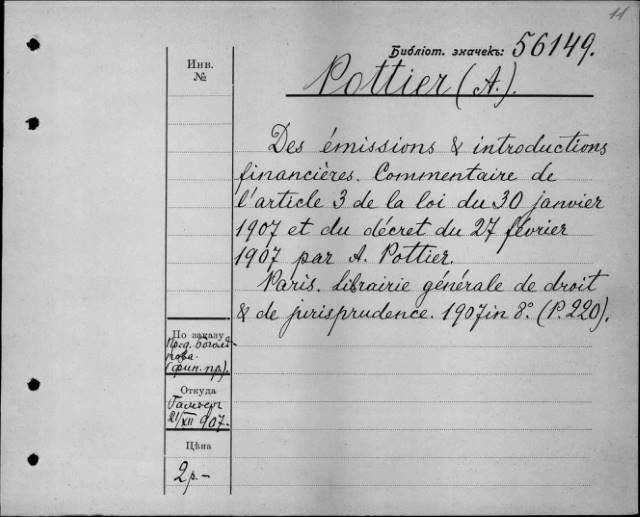 11
Библіот. значекъ: 56149.
Инв.
№
Pottier (A.).
Des émissions & introductions
financières. Commentaire de
l'article 3 de la loi du 30 janvier
1907 et du décret du 27 février
1907 par A. Pottier.
Paris. librairie générale de droit
& de jurisprudence. 1907 in 8°. (P. 220).
По заказу
(фин. пр).
Откуда
21/XII 907.
Цѣна
2р.-